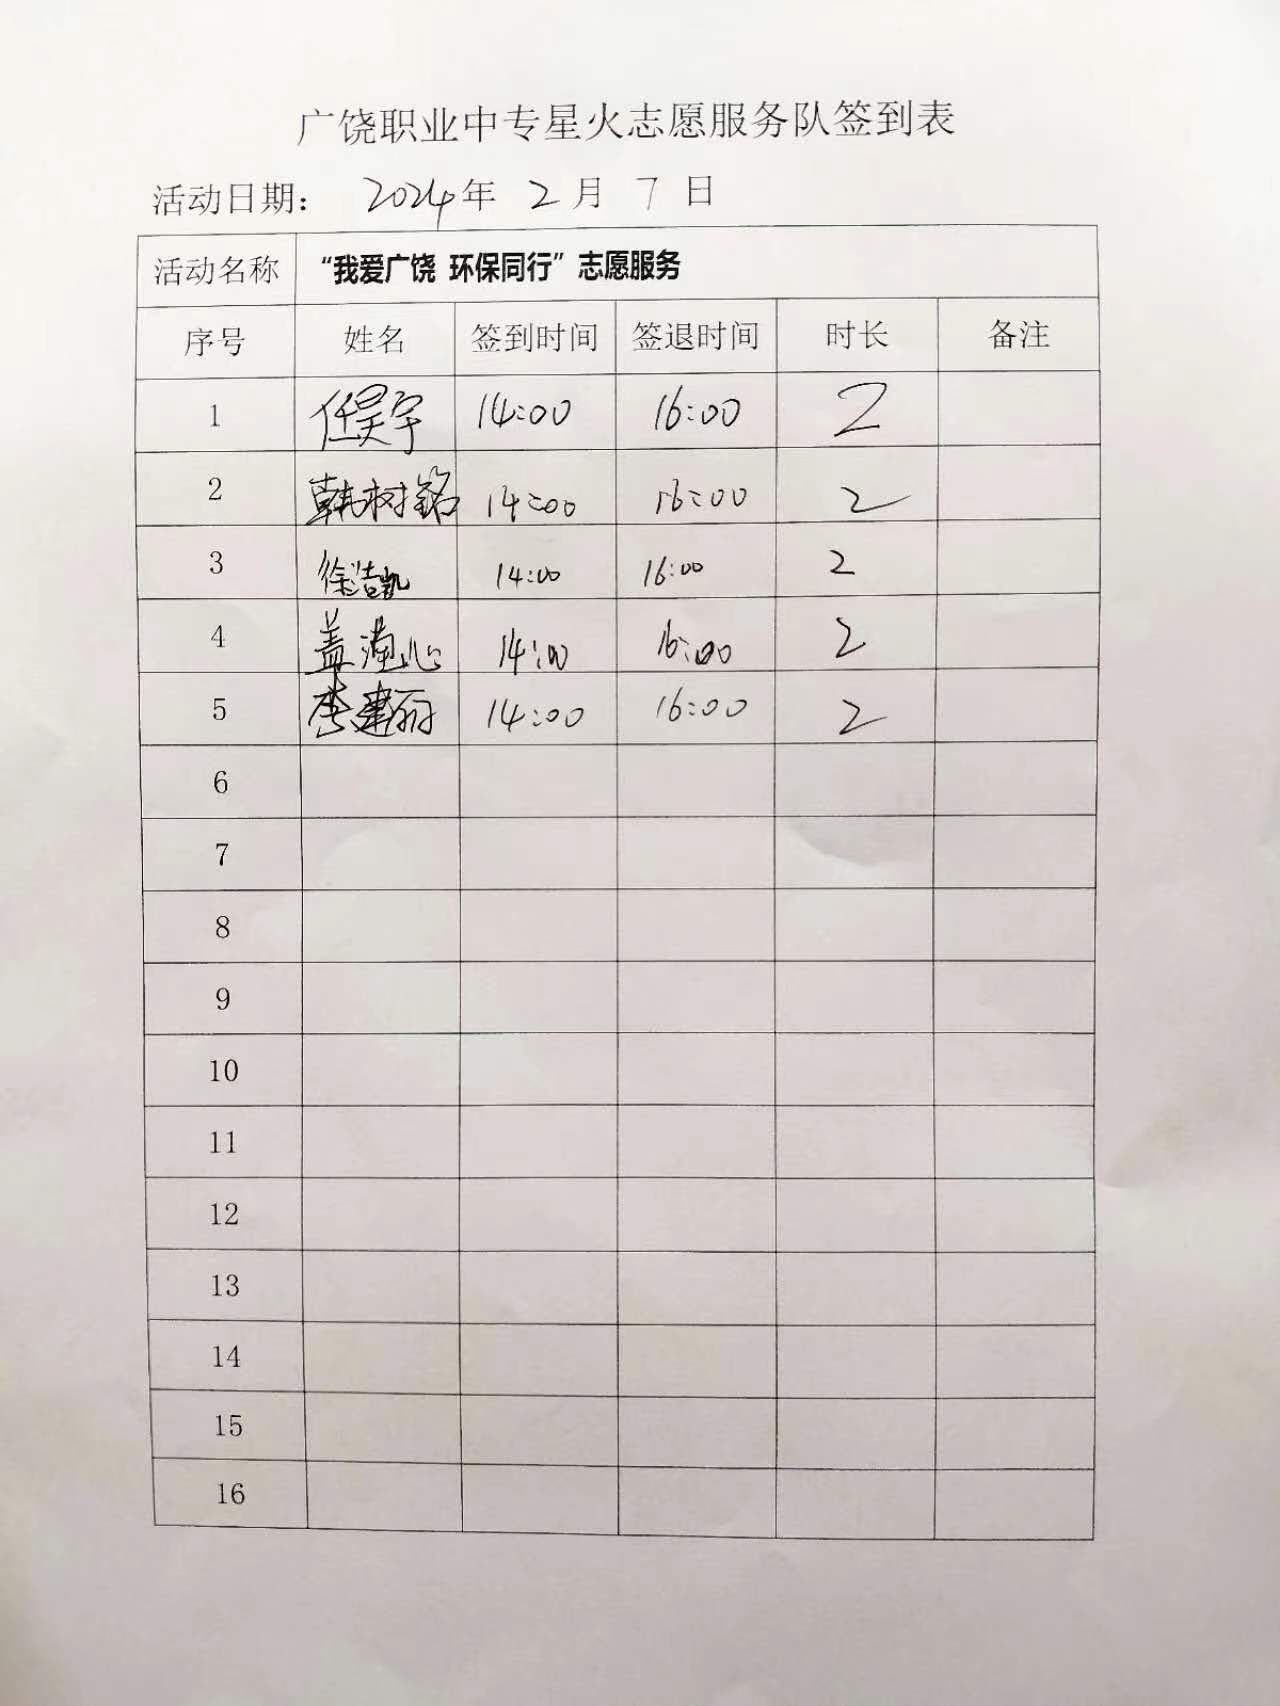 广饶职业中专星火志愿服务队签到表
活动日期： 2024年 2月 7日
活动名称 “我爱广饶 环保同行”志愿服务
序号 姓名 签到时间 签退时间 时长 备注
1 任昊宇 14:00 16:00 2
2 韩树铭 14:00 16:00 2
3 徐洁凯 14:00 16:00 2
4 盖 心 14:00 16:00 2
5 李建丽 14:00 16:00 2
6
7
8
9
10
11
12
13
14
15
16